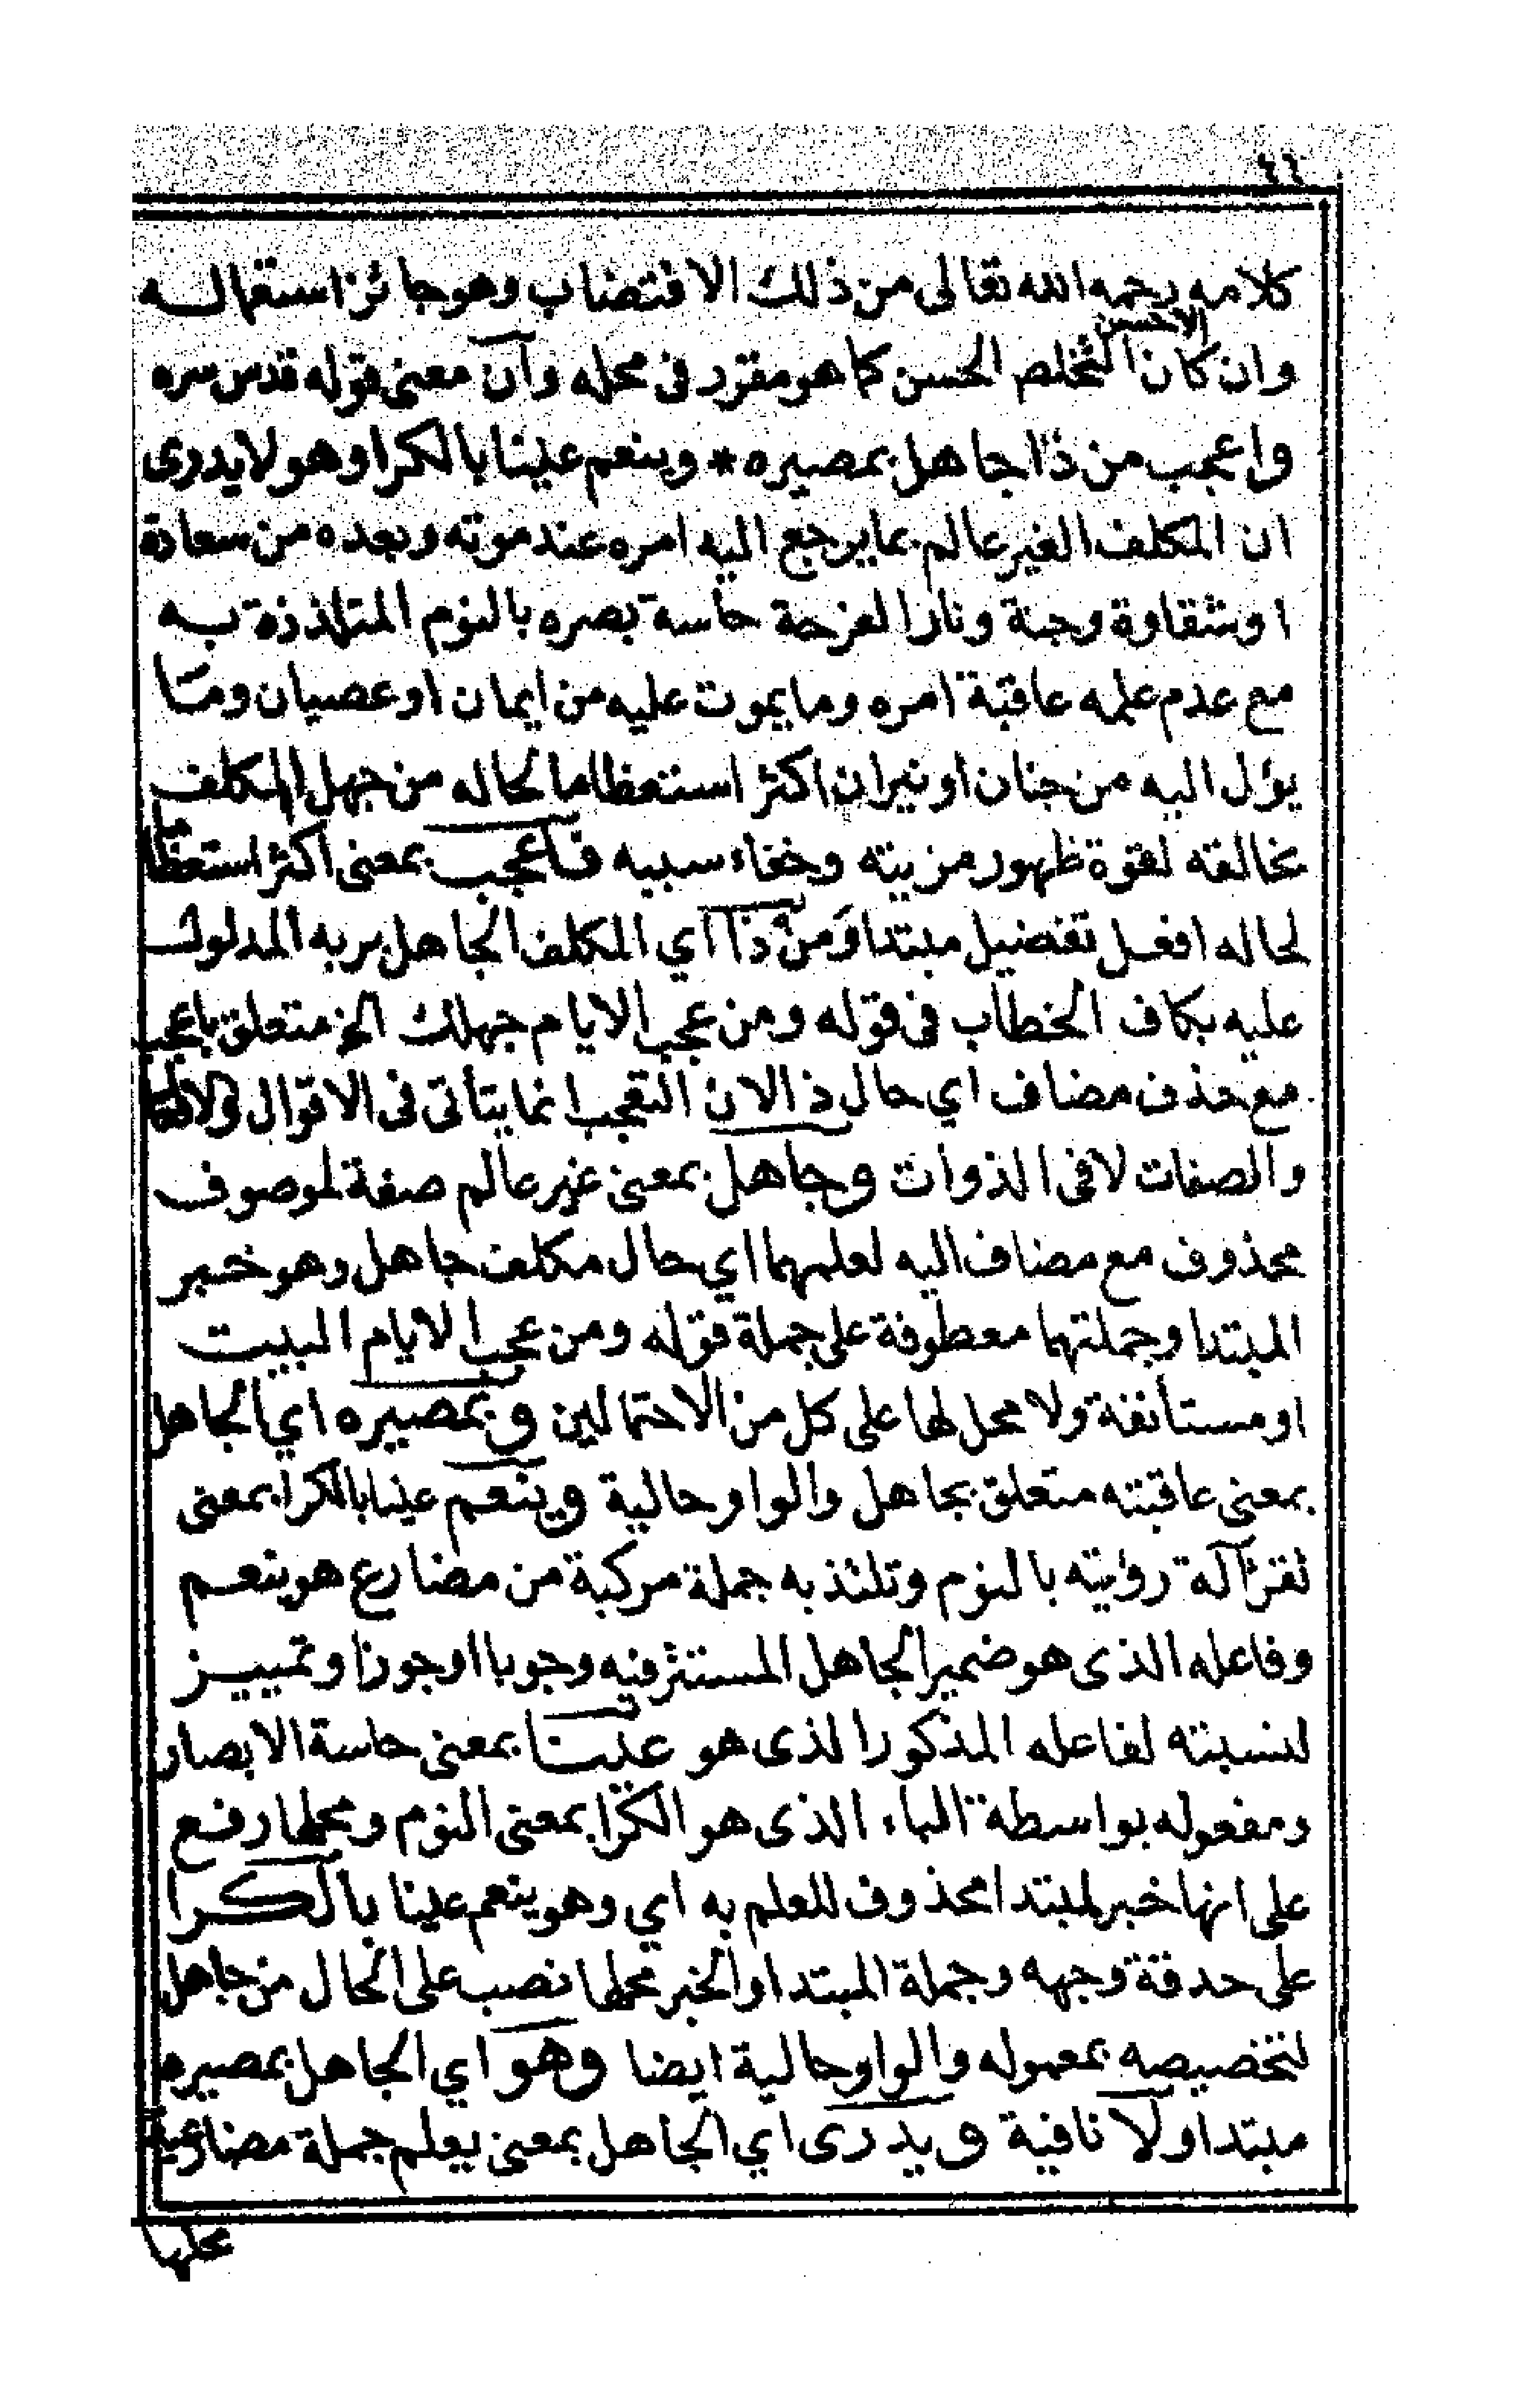 ٤٦
كلامه رحمه الله تعالى من ذلك الاقتضاب وهو جائز استعماله
الاحسن
وان كان التخلص الحسن كما هو مقرر فى محله وان معنى قوله قدس سره
واعجب من ذا جاهل بمصيره * وينعم عينا بالكرا وهو لا يدرى
ان المكلف الغير عالم بما يرجع اليه امره عند موته وبعده من سعادة
او شقاوة وجنة ونار الفرحة حاسة بصره بالنوم المتلذذة به
مع عدم علمه عاقبة امره وما يموت عليه من ايمان او عصيان وما
يؤل اليه من جنان او نيران اكثر استعظاما لحاله من جهل المكلف
بخالقه لقوة ظهور مزيته وخفاء سببه فاعجب بمعنى اكثر استعظاما
لحاله افعل تفضيل مبتدا ومن ذا اي المكلف الجاهل بربه المدلول
عليه بكاف الخطاب فى قوله ومن عجب الايام جهلك الخ متعلق باعجب
مع حذف مضاف اي حال ذا لان التعجب انما يتأتى فى الاقوال والافعال
والصفات لا فى الذوات وجاهل بمعنى غير عالم صفة لموصوف
محذوف مع مضاف اليه لعلمهما اي حال مكلف جاهل وهو خبر
المبتدا وجملتهما معطوفة على جملة قوله ومن عجب الايام البيت
او مستأنفة ولا محل لها على كل من الاحتمالين وبمصيره اي الجاهل
بمعنى عاقبته متعلق بجاهل والواو حالية وينعم عينا بالكرا بمعنى
تقر آلة رؤيته بالنوم وتلتذ به جملة مركبة من مضارع هو ينعم
وفاعله الذى هو ضمير الجاهل المستتر فيه وجوبا او جوزا وتمييز
لنسبته لفاعله المذكور الذى هو عينا بمعنى حاسة الابصار
ومفعوله بواسطة الباء الذى هو الكرا بمعنى النوم ومحلها رفع
على انها خبر لمبتدا محذوف للعلم به اي وهو ينعم عينا بالكرا
على حدقة وجهه وجملة المبتدا والخبر محلها نصب على الحال من جاهل
لتخصيصه بمعموله والواو حالية ايضا وهو اي الجاهل بمصيره
مبتدا ولا نافية ويدرى اي الجاهل بمعنى يعلم جملة مضارعية
محلها